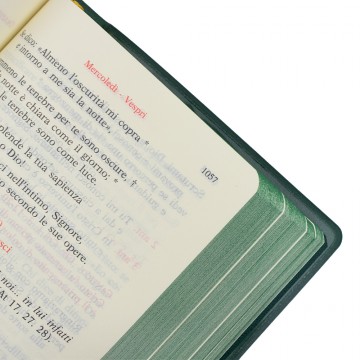 Mercoledì - Vespri
1057
dico: «Almeno l'oscurità mi copra *
e intorno a me sia la notte».
nemmeno le tenebre per te sono oscure, †
notte è chiara come il giorno; *
le tenebre sono come luce.
splende la tua sapienza
o Dio!
nell'intimo, Signore,
secondo le sue opere.
noi... in lui infatti
(At 17, 27. 28).